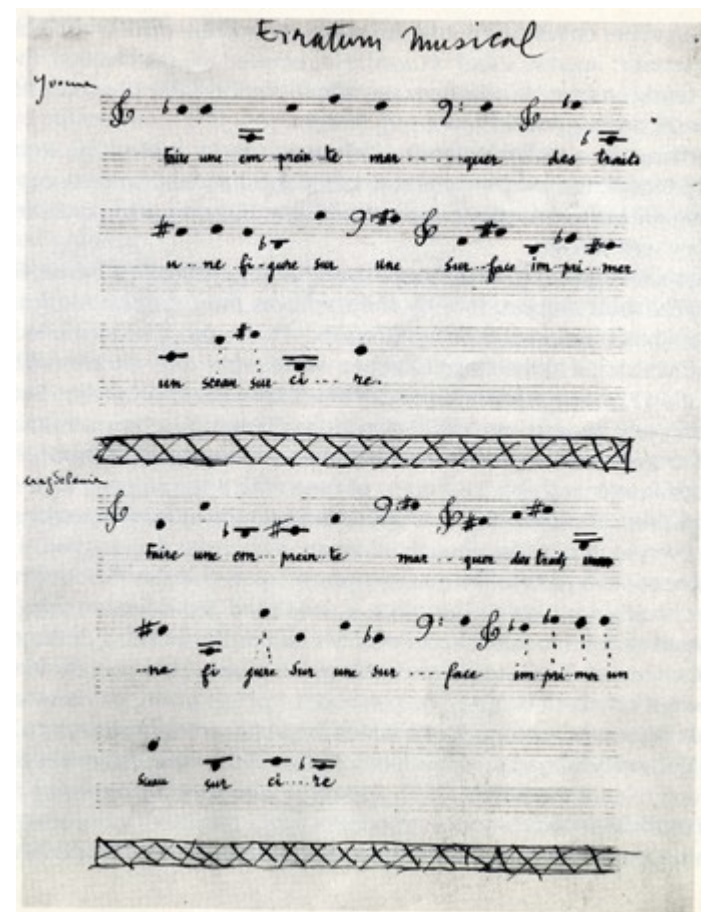 Erratum Musical
Yvonne
faire une em prein te mar ..... quer des traits
u .. ne fi .. gure sur une sur .. face im .. pri .. mer
un sceau sur ci .... re.
Magdeleine
Faire une em .. prein .. te mar ... quer des traits
ne fi gure sur une sur .... face im pri mer un
sceau sur ci .... re